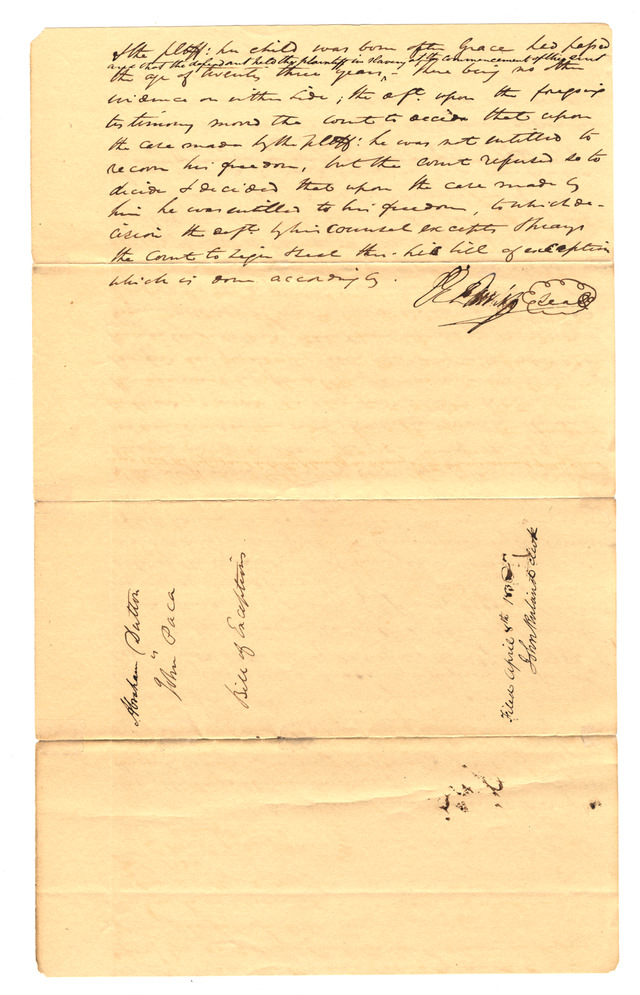 & the pltff: her child was born after Grace had passed
and that the defendant held the plaintiff in slavery at the commencement of this suit
the age of twenty three years, - There being no other
evidence on either side; the deft. upon the foregoing
testimony moved the court to decide that upon
the case made by the pltff: he was not entitled to
recover his freedom, but the court refused so to
decide & decided that upon the case made by
him he was entitled to his freedom, to which de-
cision the deft by his counsel excepts & prays
the Court to sign & seal this his bill of exception
which is done accordingly.
Seal
Abraham
vs
John Paca
Bill of Exceptions.
Filed April 8th
John clerk